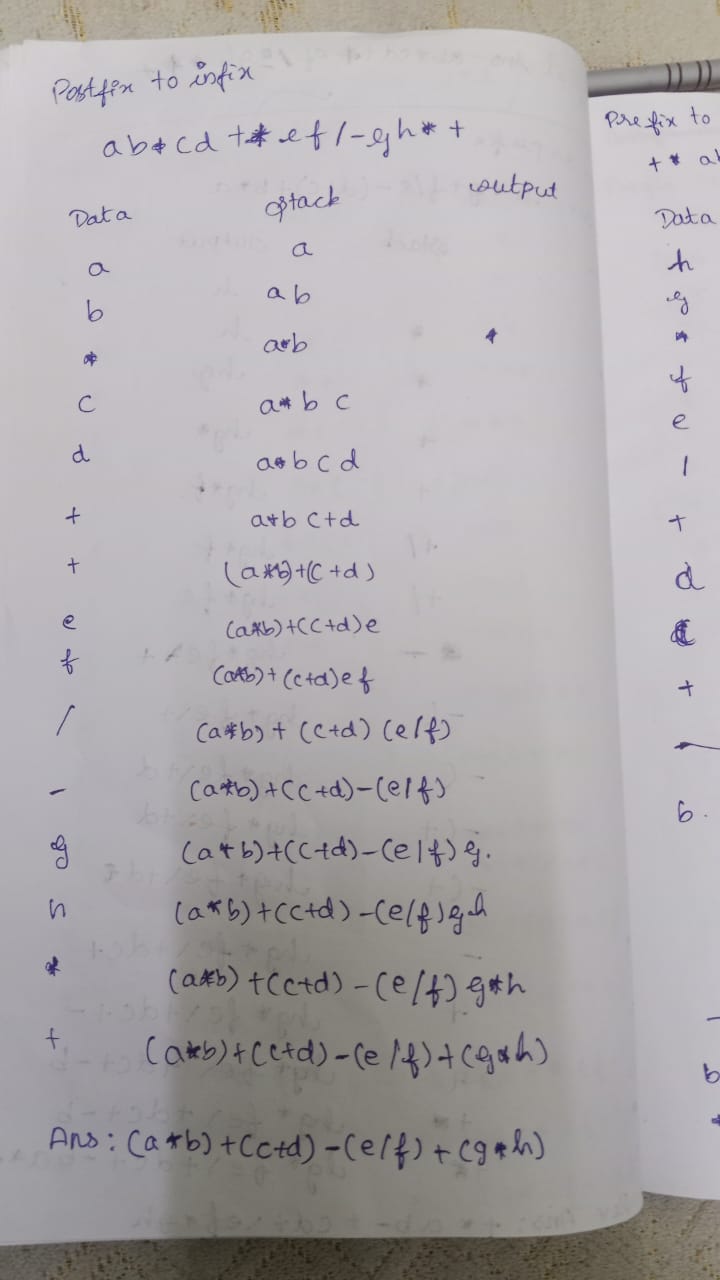 Postfix to infix
ab*cd ef/-gh*+
Data stack output
a a
b ab
* a*b
c a*b c
d a*b c d
+ a*b c+d
+ (a*b)+(c+d)
e (a*b)+(c+d)e
f (a*b)+(c+d)ef
/ (a*b)+(c+d)(e/f)
- (a*b)+(c+d)-(e/f)
g (a*b)+(c+d)-(e/f)g.
h (a*b)+(c+d)-(e/f)gh
* (a*b)+(c+d)-(e/f)g*h
+ (a*b)+(c+d)-(e/f)+(g*h)
Ans: (a*b)+(c+d)-(e/f)+(g*h)
Prefix to
+*
Data
h
g
*
f
e
/
+
d
+
-
b.
b